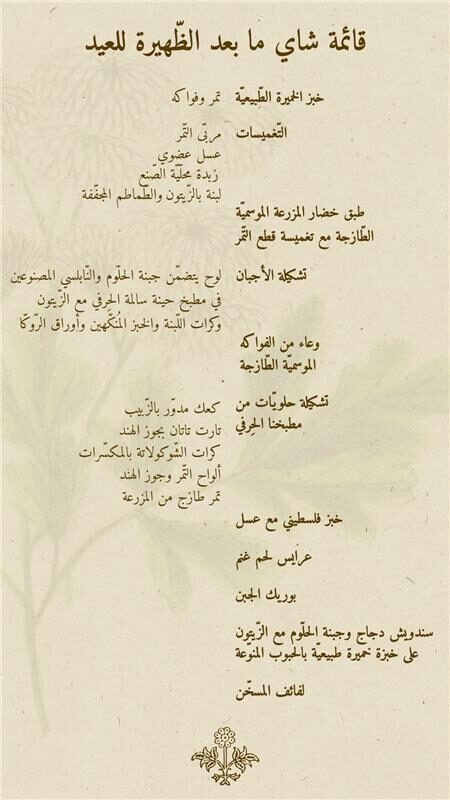 قائمة شاي ما بعد الظّهيرة للعيد
خبز الخميرة الطّبيعيّة
تمر وفواكه
التّغميسات
مربّى التّمر
عسل عضوي
زبدة محلّيّة الصّنع
لبنة بالزّيتون والطّماطم المجفّفة
طبق خضار المزرعة الموسميّة
الطّازجة مع تغميسة قطع التّمر
تشكيلة الأجبان
لوح يتضمّن جبنة الحلّوم والنّابلسي المصنوعين
في مطبخ حينة سالمة الحِرفي مع الزّيتون
وكرات اللّبنة والخبز المُنكّهين وأوراق الرّوكا
وعاء من الفواكه
الموسميّة الطّازجة
تشكيلة حلويّات من
مطبخنا الحِرفي
كعك مدوّر بالزّبيب
تارت تاتان بجوز الهند
كرات الشّوكولاتة بالمكسّرات
ألواح التّمر وجوز الهند
تمر طازج من المزرعة
خبز فلسطيني مع عسل
عرايس لحم غنم
بوريك الجبن
سندويش دجاج وجبنة الحلّوم مع الزّيتون
على خبزة خميرة طبيعيّة بالحبوب المنوّعة
لفائف المسخّن